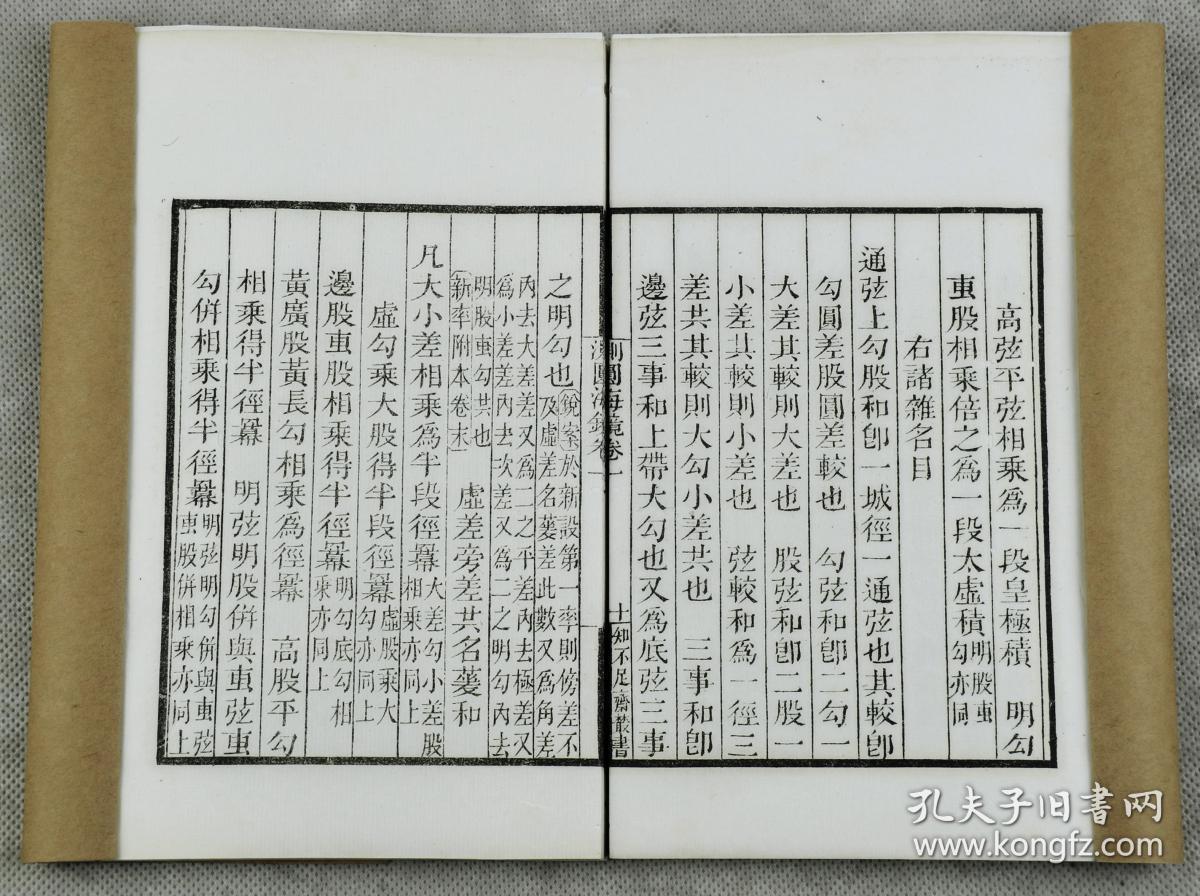 高弦平弦相乘爲一段皇極積　明勾
叀股相乘倍之爲一段太虛積明股叀
勾亦同
右諸雜名目
通弦上勾股和卽一城徑一通弦也其較卽
勾圓差股圓差較也　勾弦和卽二勾一
大差其較則大差也　股弦和卽二股一
小差其較則小差也　弦較和爲一徑三
差共其較則大勾小差共也　三事和卽
邊弦三事和上帶大勾也又爲底弦三事
測圓海鏡卷一
十一
知不足齋叢書
之明勾也銳案於新設第一率則傍差不
及虛差名蔓差此數又爲角差
內去大差差又爲二之平差內去極差又
爲小差差內去次差又爲二之明勾內去
明股叀勾共也
新率附本卷末
虛差旁差共名蔓和
凡大小差相乘爲半段徑冪大差勾小差股
相乘亦同上
虛勾乘大股得半段徑冪虛股乘大
勾亦同上
邊股叀股相乘得半徑冪明勾底勾相
乘亦同上
黃廣股黃長勾相乘爲徑冪　高股平勾
相乘得半徑冪　明弦明股併與叀弦叀
勾併相乘得半徑冪明弦明勾併與叀弦
叀股併相乘亦同上
孔夫子旧书网
www.kongfz.com